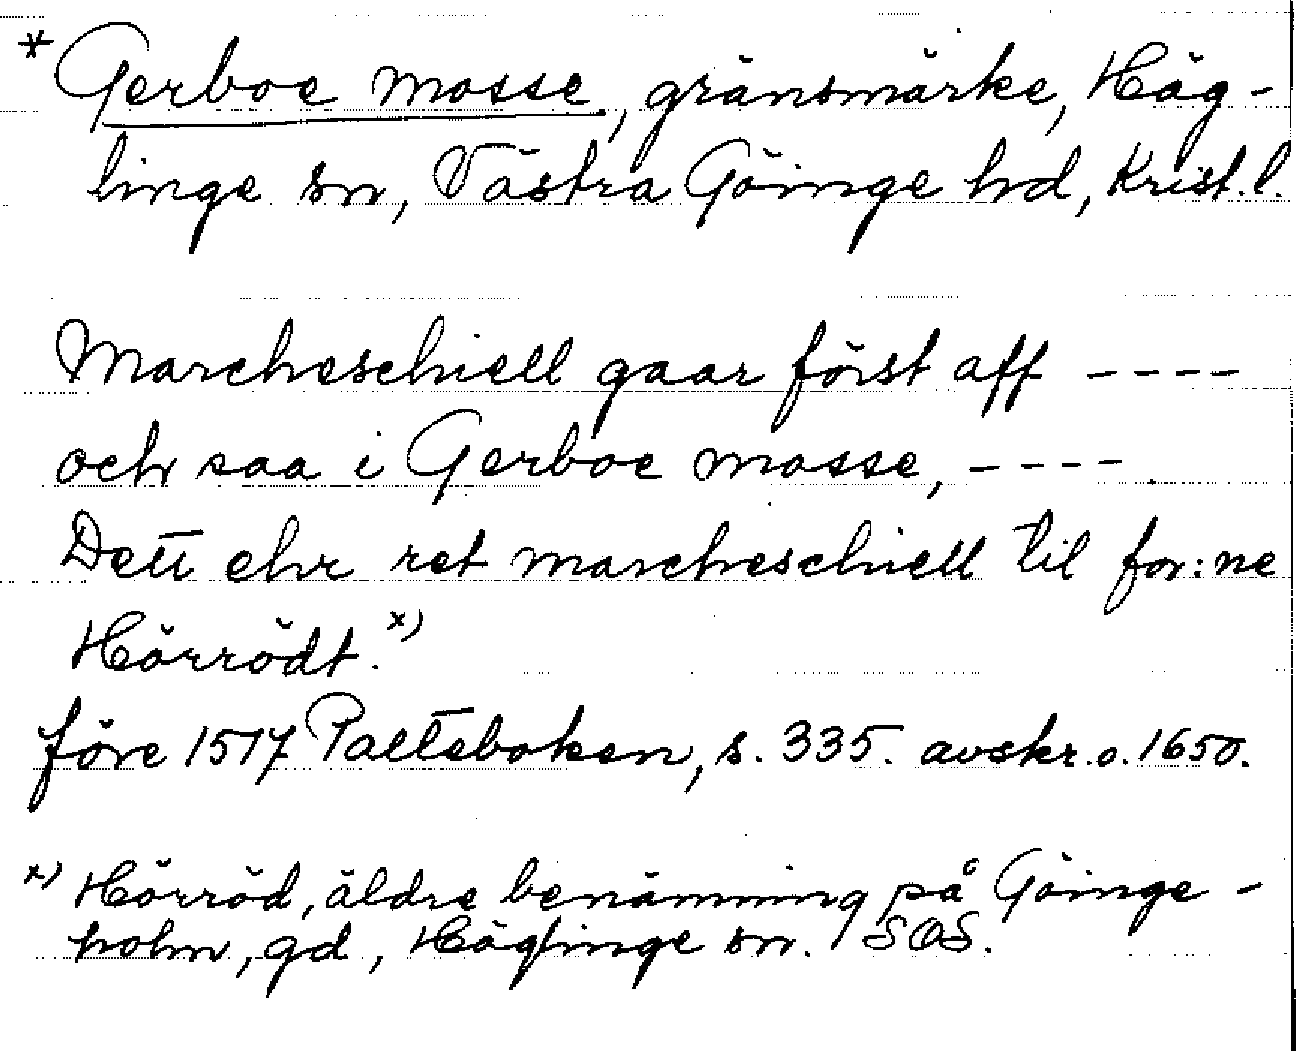 * Gerboe mosse, gränsmärke, Häg-
linge sn, Västra Göinge hd, Krist. l.
Marcheschiell gaar först aff ----
och saa i Gerboe mosse, ----.
Dett ehr ret marcheschiell til for:ne
Hörrödt. x)
före 1517 Palteboken, s. 335. avskr. o. 1650.
x) Hörröd, äldre benämning på Göinge-
holm, gd, Häglinge sn. / SOS.